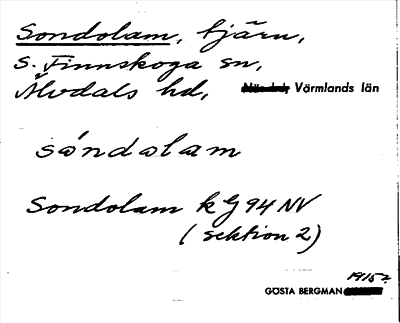 Sondolam, tjärn,
S. Finnskoga sn,
Älvdals hd, Värmlands län
sóndalam
Sondolam k G 94 NV
(sektion 2)
1915?
GÖSTA BERGMAN